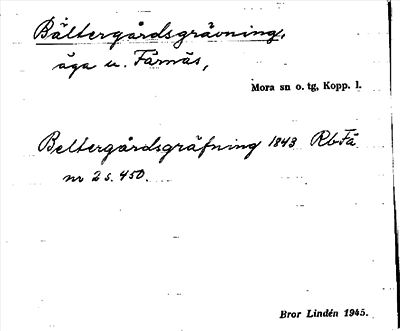 Bältergårdsgrävning,
äga u. Färnäs,
Mora sn o. tg, Kopp. l.
Beltergårdsgräfning 1843 RbFä
nr 2 s. 450.
Bror Lindén 1945.